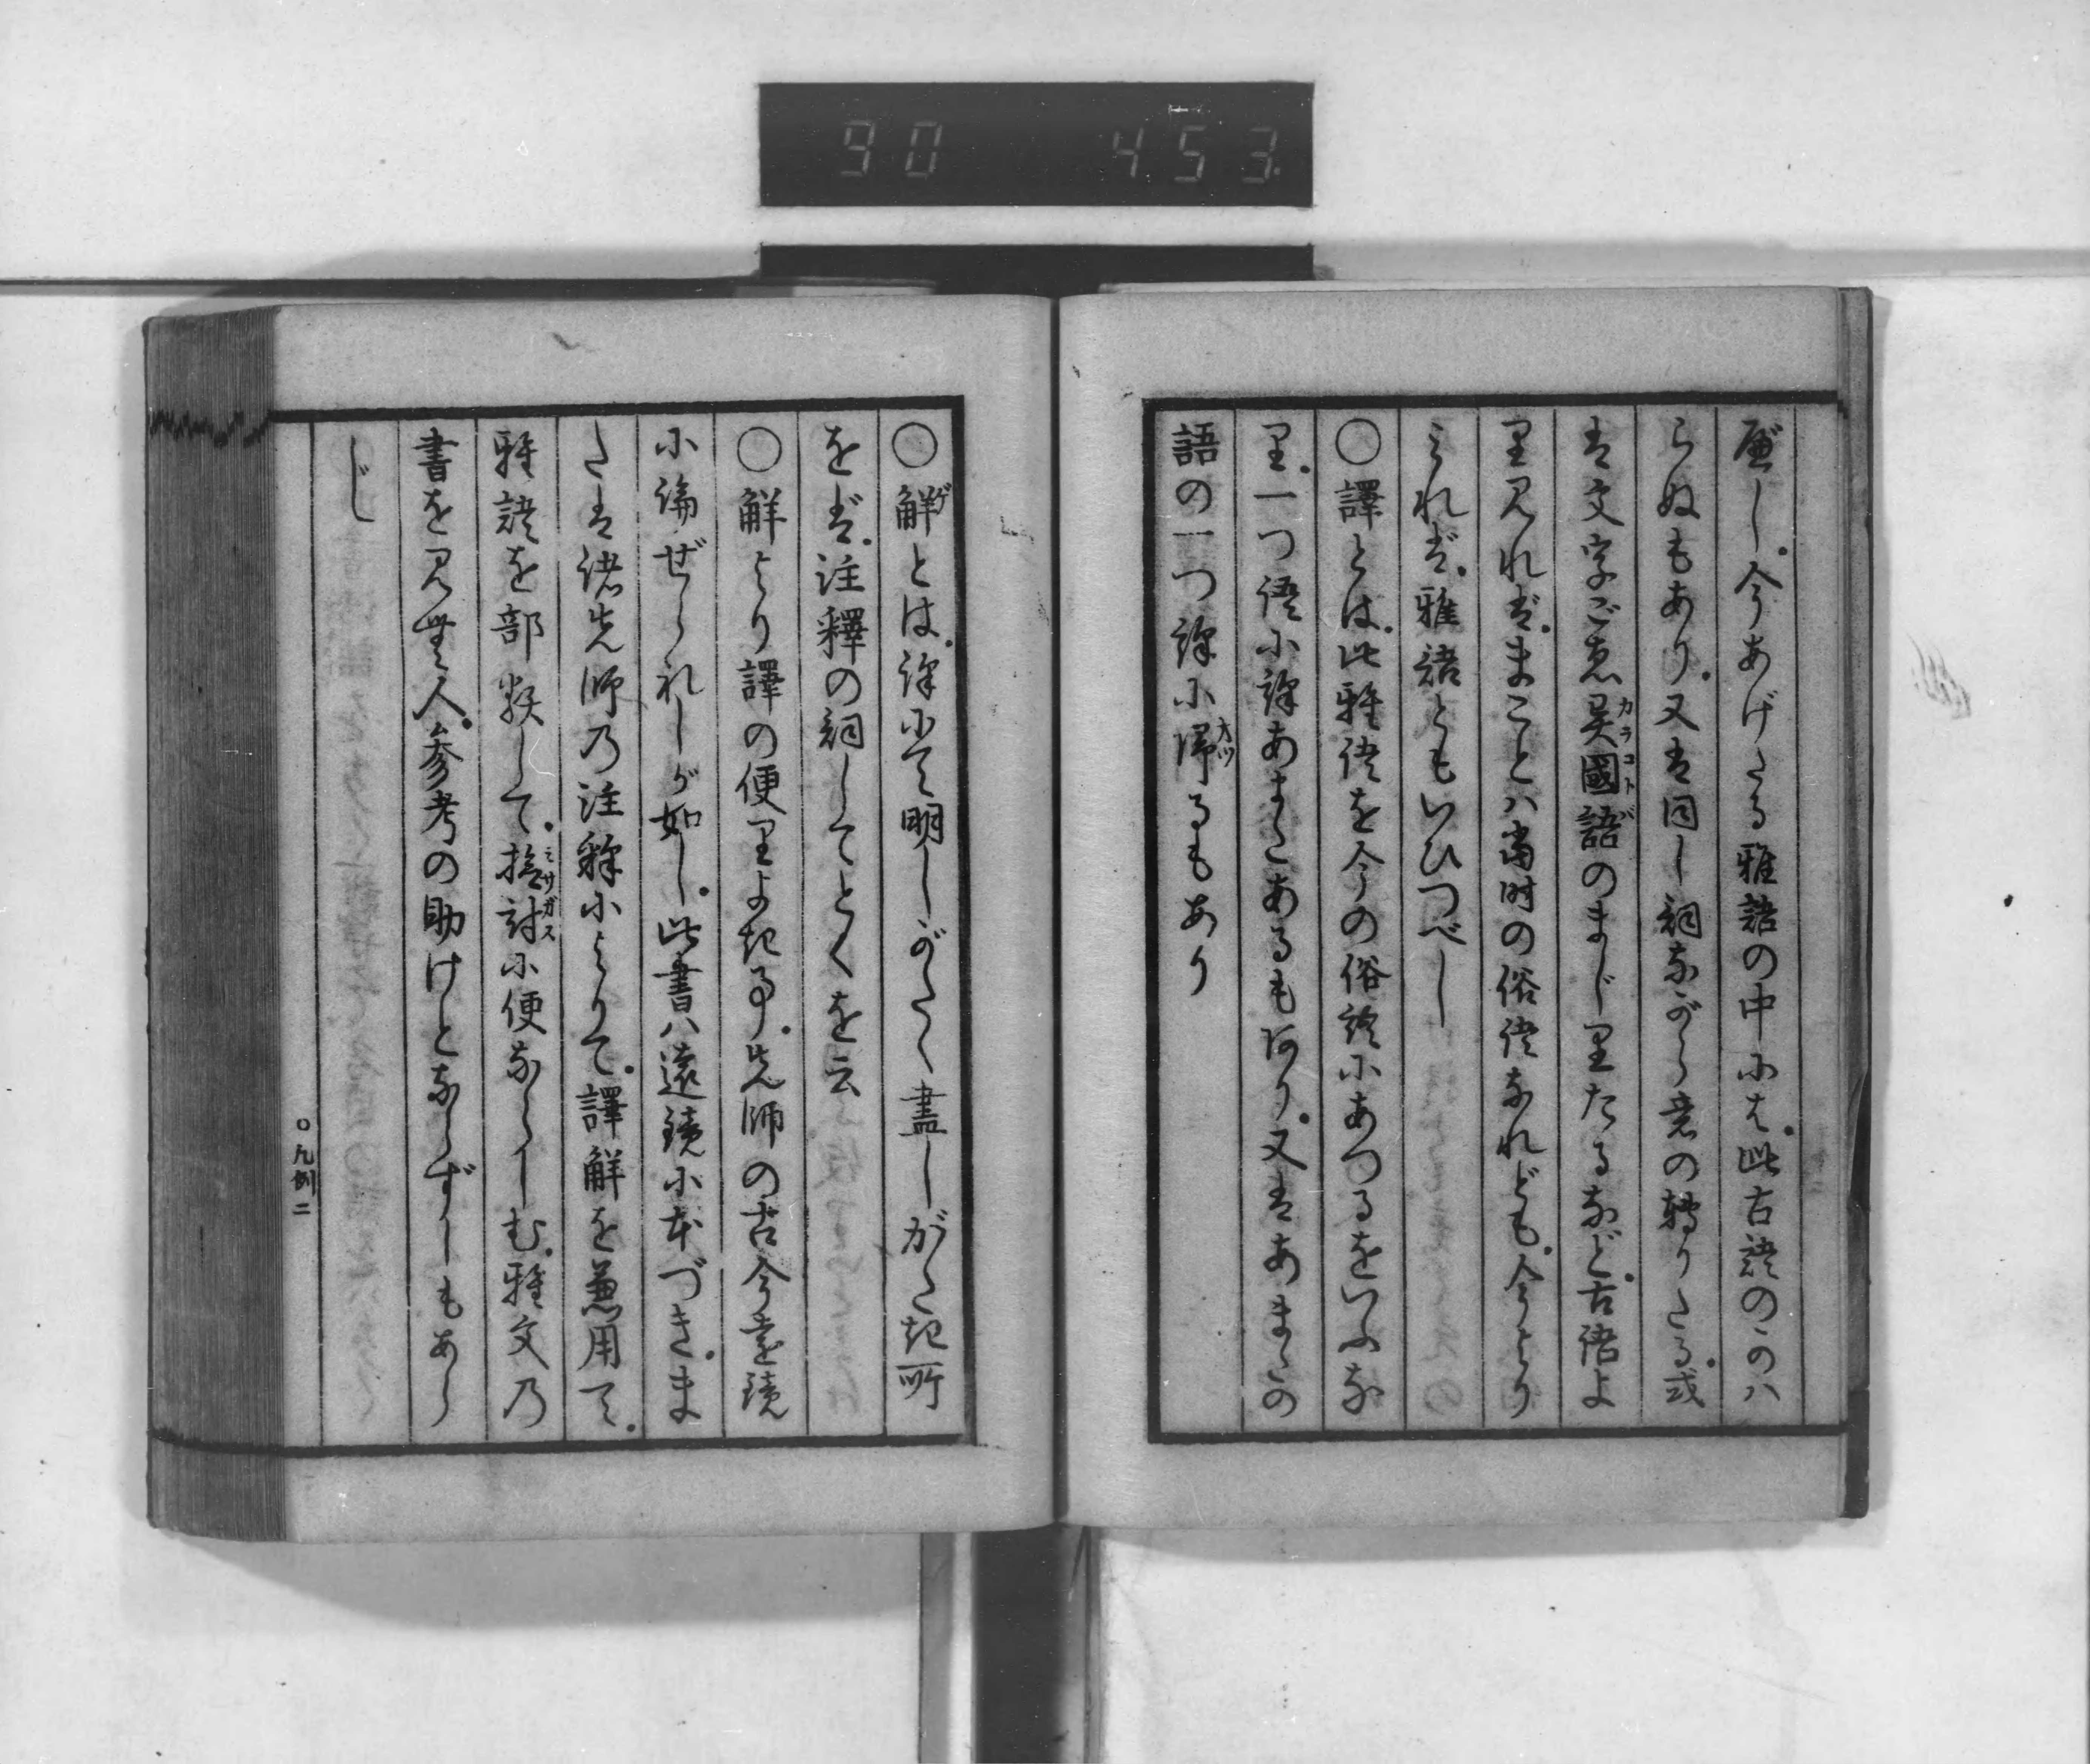 90 453
べし。今あげたる雅語の中には。此古語のかハ
らぬもあり。又は同し詞ながら意の轉りたる。或
は文字ごゑ異國語のまじりたるなど。古語よ
り見れば。まことハ當時の俗語なれども。今より
みれば。雅語ともいひつべし
〇譯とは。此雅語を今の俗語にあつるをいふな
り。一つ語に譯あまたあるも阿り。又はあまたの
語の一つ譯に帰るもあり
カラコトバ
オツ
〇解とは。譯にて明しがたく盡しがたき所
をば。注釋の詞してとくを云
〇解より譯の便りよき事。先師の古今遠鏡
に論ぜられしが如し。此書ハ遠鏡に本づき。ま
たは諸先師乃注釋によりて。譯解を兼用て。
雅語を部類して。捻討に便ならしむ。雅文乃
書を見む人。参考の助けとならずしもあら
じ
ゲ
サガス
〇凡例二